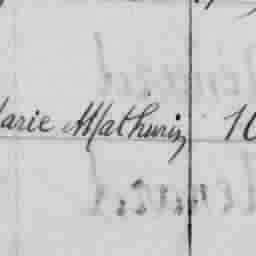 arie Mathurin 10